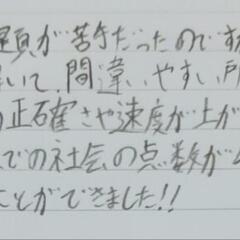 題が苦手だったのです
いて、間違いやすい所
の正確さや速度が上が
での社会の点数が
ことができました!!